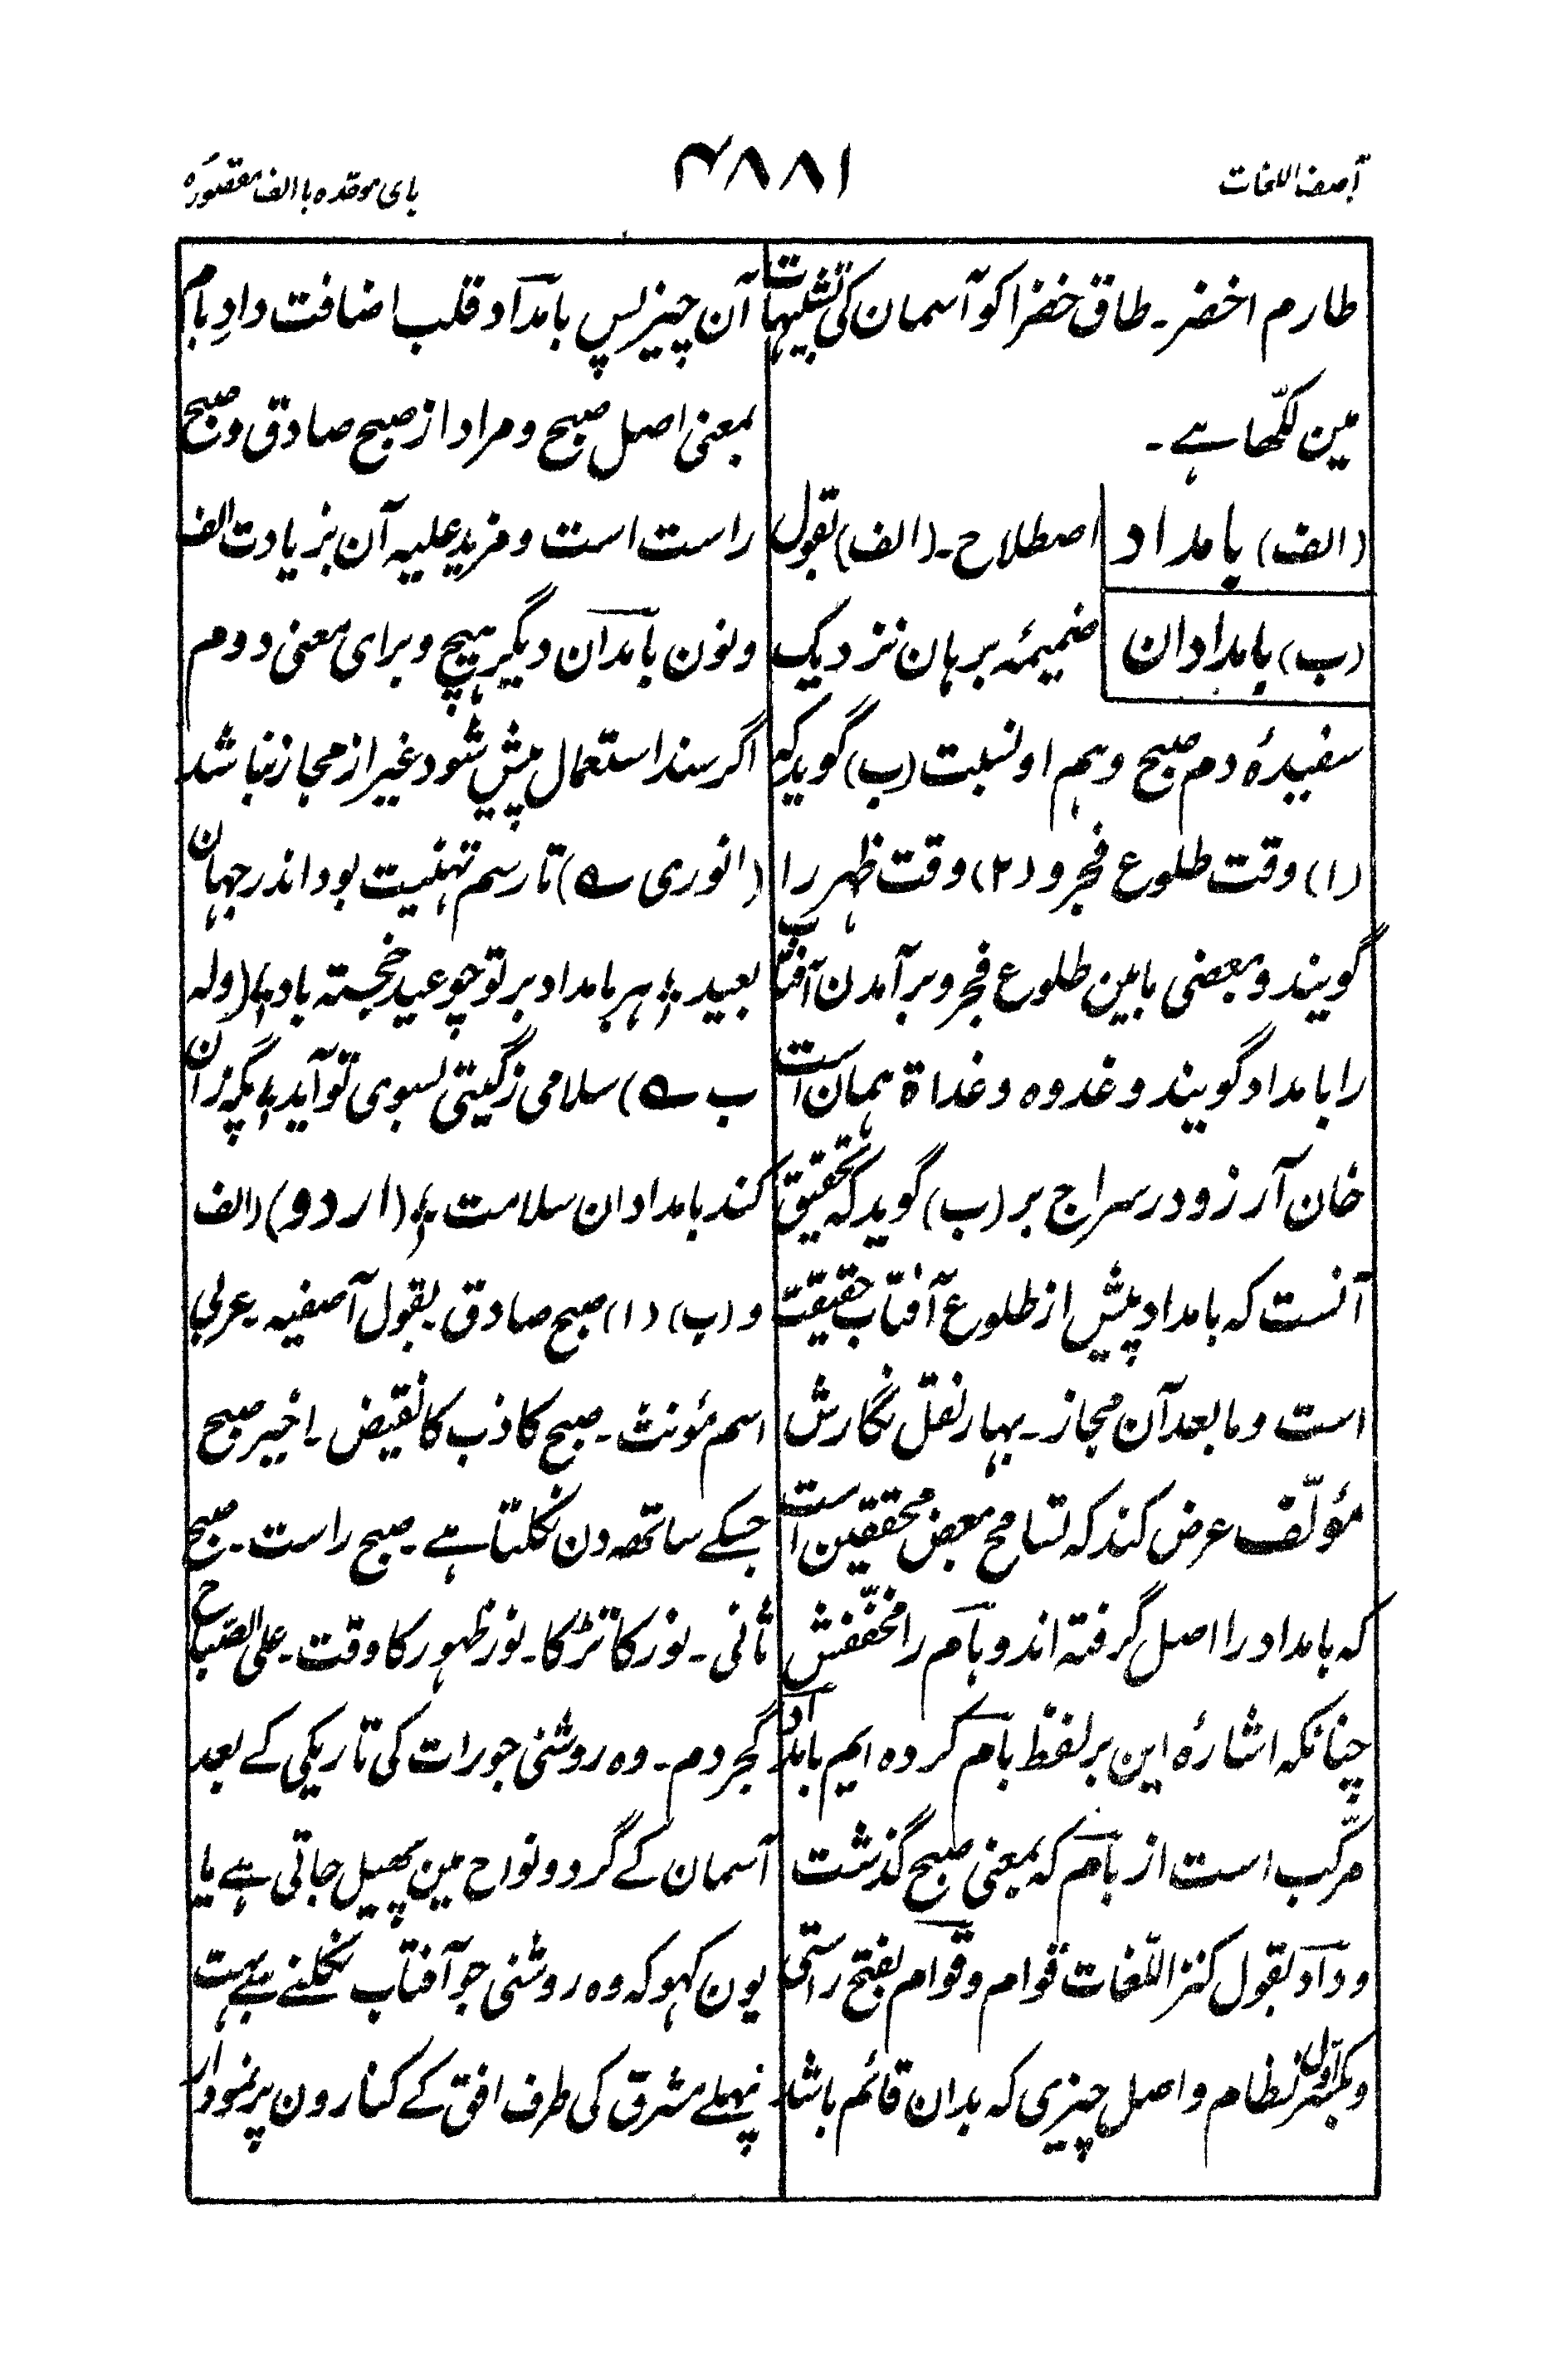 آصف اللغات
۴۸۸۱
بای موحّده با الف مقصورہ
طارم اخضر۔ طاق خضرا کو آسمان کی تشبیہات
مین لکّھا ہے۔
(الف) بامداد اصطلاح۔ (الف) بقول
(ب) بامدادان ضمیمۂ برہان نزدیک
سفیدۂ دم صبح و ہم او نسبت (ب) گوید کہ
(۱) وقت طلوع فجر و (۲) وقت ظہر را
گویند و بعضی مابین طلوع فجر و برآمدن آفتاب
را بامداد گویند و غدوہ و غداۃ ہمان است
خان آرزو در سراج بر (ب) گوید کہ تحقیق
آنست کہ بامداد پیش از طلوع آفتاب حقیقت
است و مابعد آن مجاز۔ بہار نقل نگارش
مؤلّف عرض کند کہ تسامح بعض محققین است
کہ بامداد را اصل گرفتہ اند و بام را مخفّفش
چنانکہ اشارۂ این بر لفظ بام کردہ ایم بامداد
مرکّب است از بام کہ بمعنی صبح گذشت
و داد بقول کنز اللّغات قوام و قوام بفتح راستی
و بکسر اوّل نظام و اصل چیزی کہ بدان قائم باشد
آن چیز پس بامداد قلب اضافت دادِ بام
بمعنی اصل صبح و مراد از صبح صادق و صبح
راست است و مزید علیہ آن بزیادت الف
و نون بامدادن دیگر ہیچ و برای معنی دوم
اگر سند استعمال پیش شود غیر از مجاز نباشد
(انوری ے) تا رسم تہنیت بود اندر جہان
بعید ؛ ہر بامداد بر تو چو عید خجستہ باد ؛ (ولہ
ب ے) سلامی ز گیتی بسوی تو آید ؛
کند بامدادان سلامت ؛ (اردو) (الف
و (ب) (۱) صبح صادق۔ بقول آصفیہ۔ عربی
اسم مؤنث۔ صبح کاذب کا نقیض۔ اخیر صبح
جسکے ساتھہ دن نکلتا ہے۔ صبح راست۔ صبح
ثانی۔ نور کا تڑکا۔ نور ظہور کا وقت۔ علی الصّباح
گجر دم۔ وہ روشنی جو رات کی تاریکی کے بعد
آسمان کے گرد و نواح مین پھیل جاتی ہے یا
یون کہو کہ وہ روشنی جو آفتاب نکلنے سے بہت
پہلے مشرق کی طرف افق کے کنارون پر نمودار